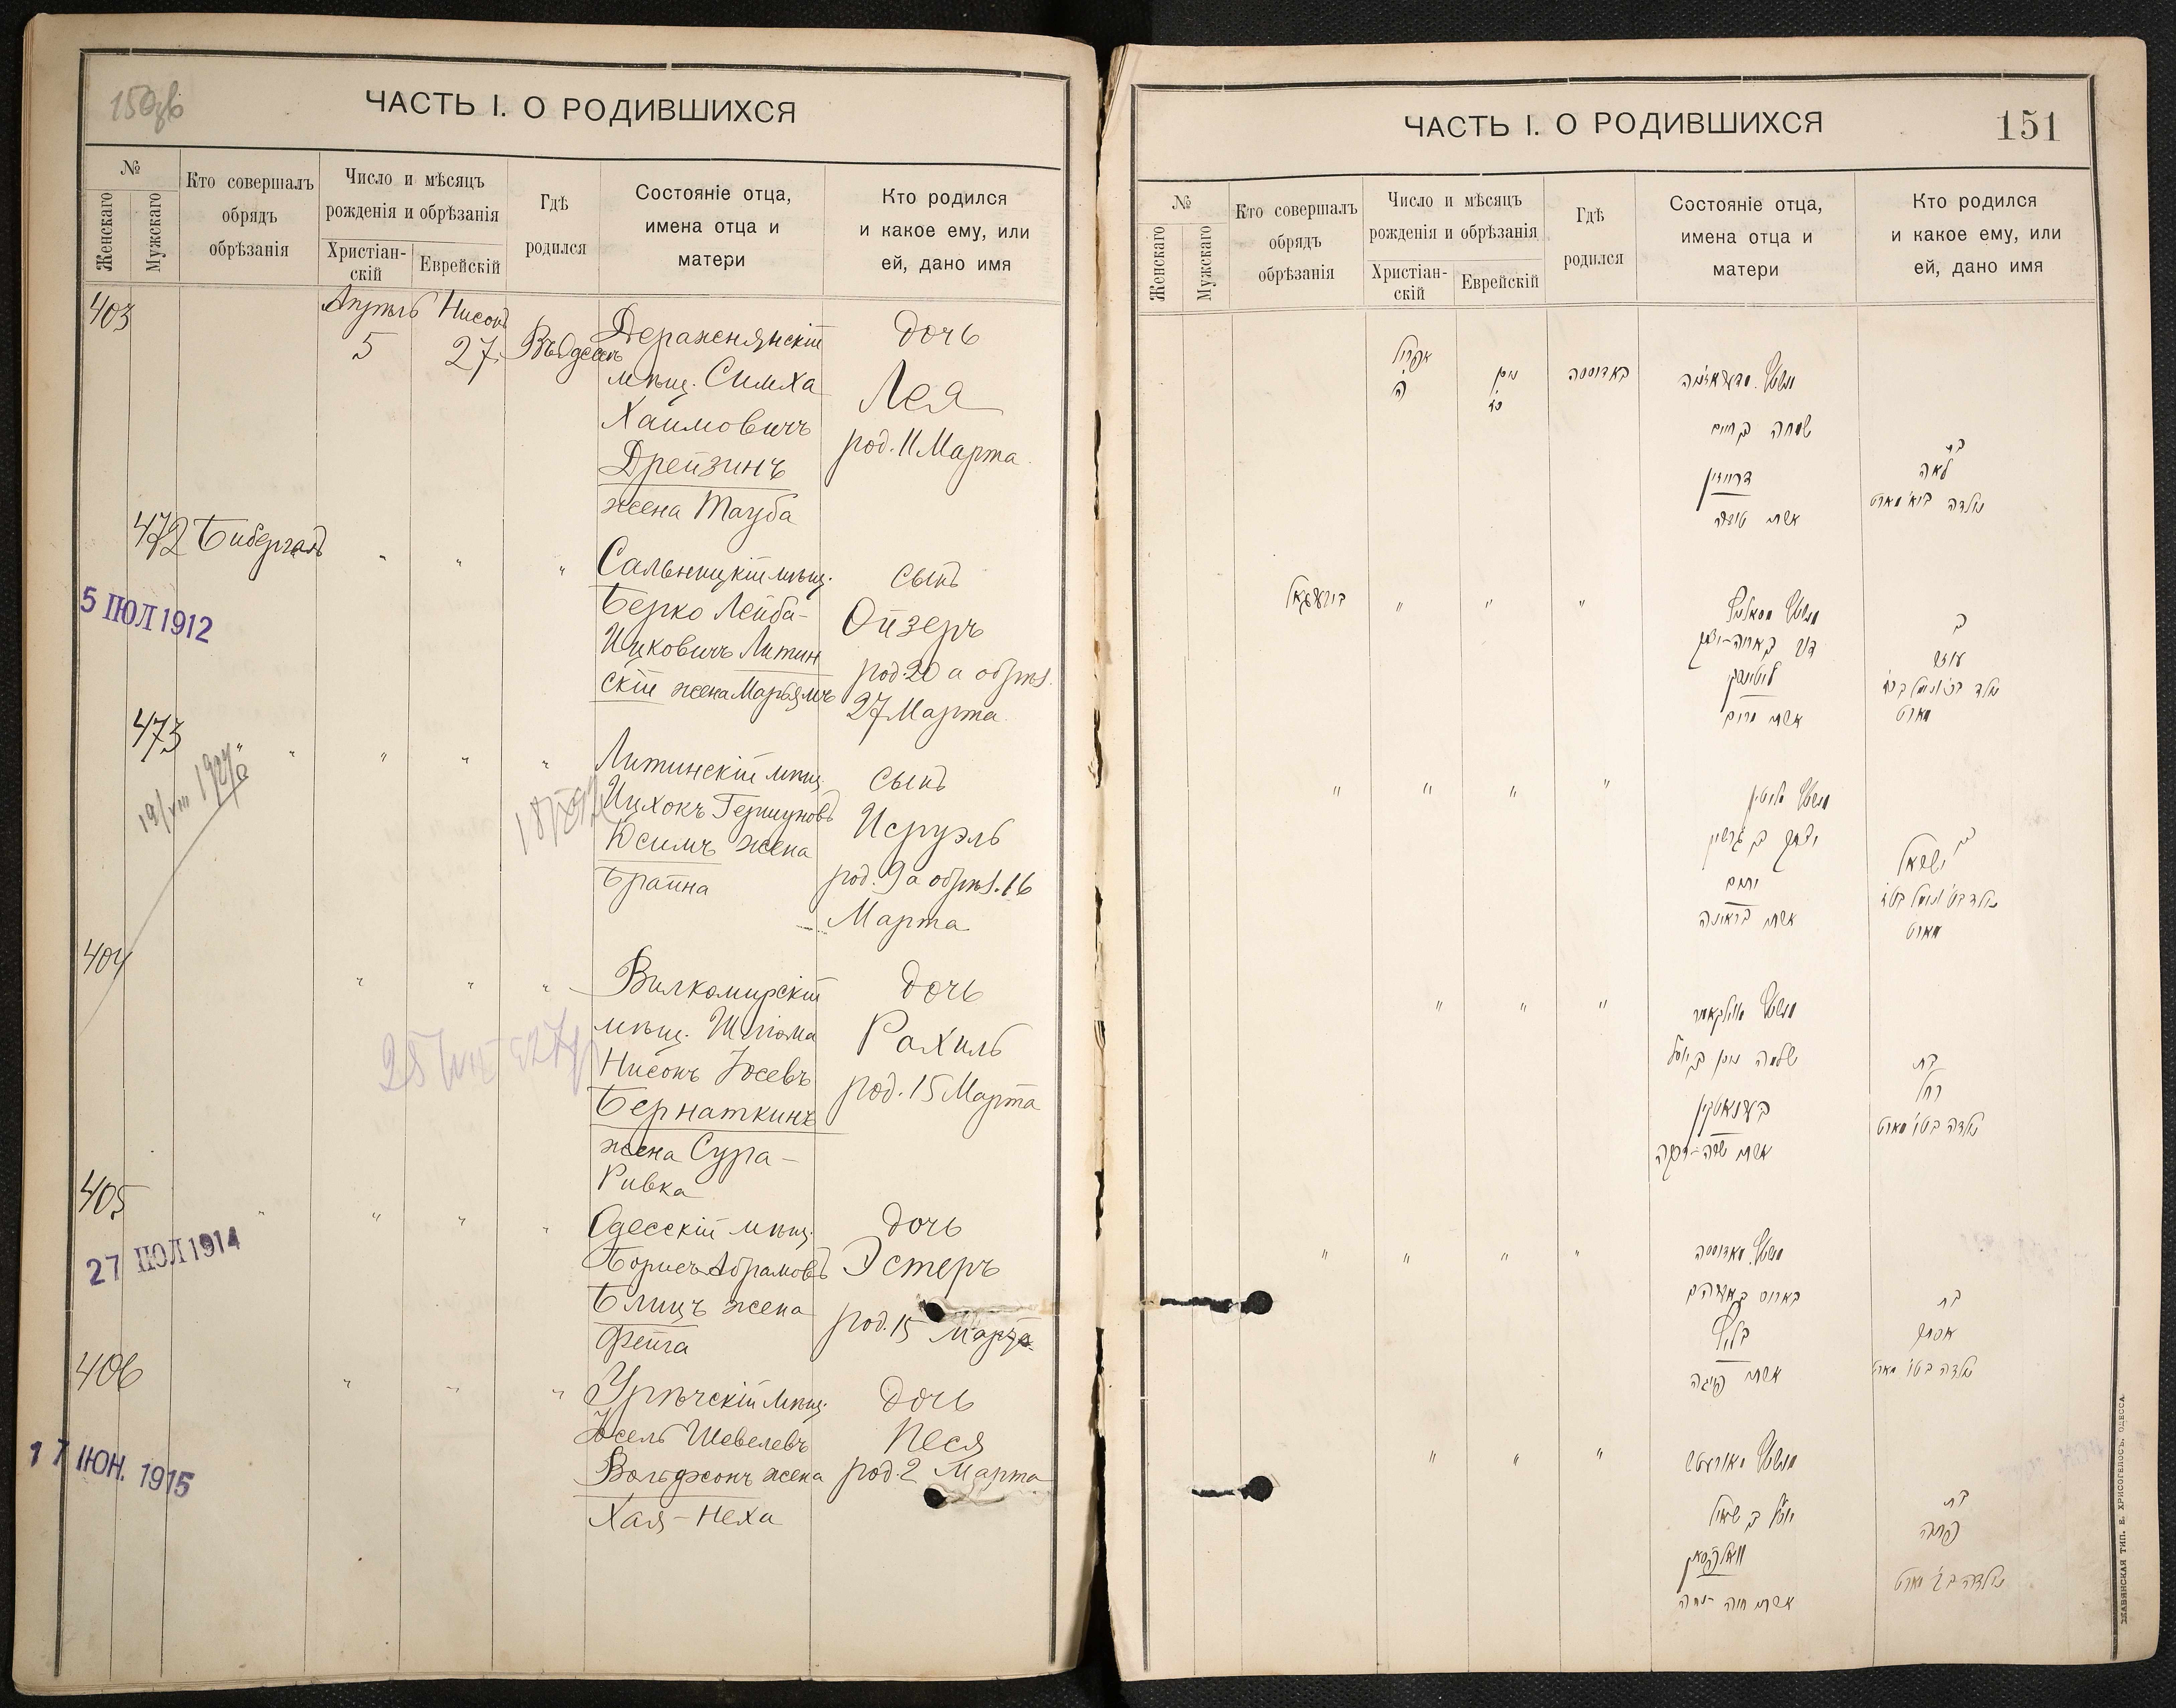 150об
ЧАСТЬ I. О РОДИВШИХСЯ
№
Женскаго
Мужскаго
Кто совершалъ
обрядъ
обрѣзанія
Число и мѣсяцъ
рожденія и обрѣзанія
Христіан-
скій
Еврейскій
Гдѣ
родился
Состояніе отца,
имена отца и
матери
Кто родился
и какое ему, или
ей, дано имя
403
Апрѣль Нисонъ
5 27. Въ Одессѣ
Деражнянскій
мѣщ. Симха
Хаимовичъ
Дрейзинъ
жена Тауба
дочь
Лея
род. 11 Марта.
472 Бибергалъ " " "
5 ІЮЛ 1912
Сальницкій мѣщ.
Берко Лейба-
Ицковичъ Литин
скій жена Марьямъ
сынъ
Ойзеръ
род. 20 а обрѣз.
27 Марта.
473 " " " "
19/VIII 1927
Литинскій мѣщ.
Ицхокъ Гершуновъ
Юсимъ жена
Брайна
сынъ
Исруэль
род. 9 а обрѣз. 16
Марта
404 " " "
Вилкомирскій
мѣщ. Шліома
Нисонъ Іосевъ
Бернаткинъ
жена Сура-
Ривка
дочь
Рахиль
род. 15 Марта
405 " " " "
27 ІЮЛ 1914
Одесскій мѣщ.
Борисъ Абрамовъ
Блицъ жена
Фейга
дочь
Эстеръ
род. 15 Марта
406 " " "
17 ІЮН. 1915
Урѣчскій мѣщ.
Іосель Шевелевъ
Вольфсонъ жена
Хая-Неха
дочь
Песя
род. 2 Марта
ЧАСТЬ I. О РОДИВШИХСЯ
151
№
Женскаго
Мужскаго
Кто совершалъ
обрядъ
обрѣзанія
Число и мѣсяцъ
рожденія и обрѣзанія
Христіан-
скій
Еврейскій
Гдѣ
родился
Состояніе отца,
имена отца и
матери
Кто родился
и какое ему, или
ей, дано имя
אפריל
ה'
ניסן
כז
באדוססה
שמחה בן חיים
דרייזין
אשתו טויבה
בת
לאה
נולדה בי"א מארט
ביבערגאל " " "
ליטינסקי
אשתו מרים
בן
עוזר
מארט
" " " "
יצחק בן גרשון
יוסים
אשתו בריינה
בן
ישראל
מארט
" " "
שלמה ניסן בן יוסף
בערנאטקין
אשתו שרה-רבקה
בת
רחל
נולדה בט"ו מארט
" " " "
באריס בן אברהם
בליץ
אשתו פייגה
בת
אסתר
נולדה בט"ו מארט
" " "
וואלפסאן
אשתו חיה-נחה
בת
פעסיה
נולדה בב' מארט
СЛАВЯНСКАЯ ТИП. Е. ХРИСОГЕЛОСЪ. ОДЕССА.